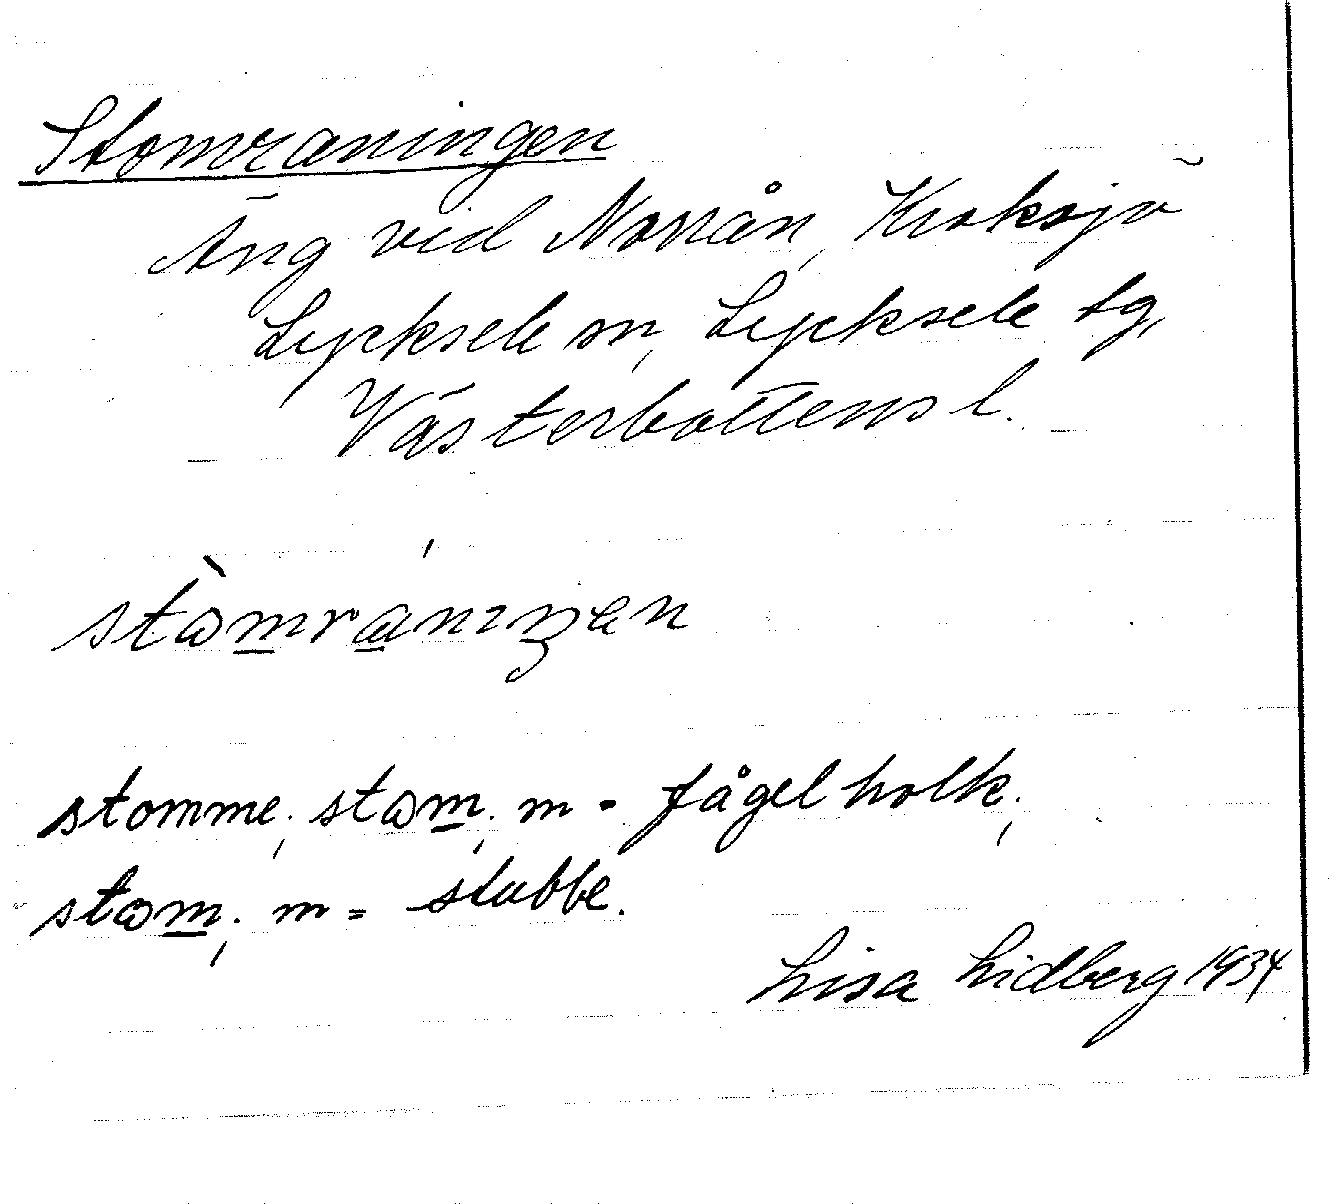 Stomraningen
Äng vid Norrån, Kroksjö
Lycksele sn, Lycksele tg,
Västerbottens l.
stòmrániŋen
stomme; stom; m = fågelholk;
stom; m = stubbe.
Lisa Lidberg 1934